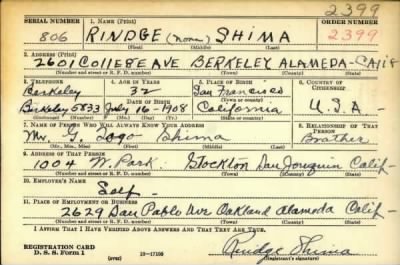 2399
SERIAL NUMBER 1. NAME (Print) ORDER NUMBER
806 RINDGE (none) SHIMA 2399
(First) (Middle) (Last)
2. ADDRESS (Print)
2601 COLLEGE AVE BERKELEY ALAMEDA - CALIF
(Number and street or R. F. D. number) (Town) (County) (State)
3. TELEPHONE 4. AGE IN YEARS 5. PLACE OF BIRTH 6. COUNTRY OF CITIZENSHIP
Berkeley 32 San Francisco
DATE OF BIRTH (Town or county)
Berkeley 5833 July 16 - 1908 California U.S.A -
(Exchange) (Number) (Mo.) (Day) (Yr.) (State or country)
7. NAME OF PERSON WHO WILL ALWAYS KNOW YOUR ADDRESS 8. RELATIONSHIP OF THAT PERSON
Mr. G. Togo Shima Brother
(Mr., Mrs., Miss) (First) (Middle) (Last)
9. ADDRESS OF THAT PERSON
1004 W. Park. Stockton San Joaquin Calif -
(Number and street or R. F. D. number) (Town) (County) (State)
10. EMPLOYER'S NAME
Self -
11. PLACE OF EMPLOYMENT OR BUSINESS
2629 San Pablo Ave Oakland Alameda Calif -
(Number and street or R. F. D. number) (Town) (County) (State)
I AFFIRM THAT I HAVE VERIFIED ABOVE ANSWERS AND THAT THEY ARE TRUE.
REGISTRATION CARD
D. S. S. Form 1 (over) Rindge Shima
(Registrant's signature)